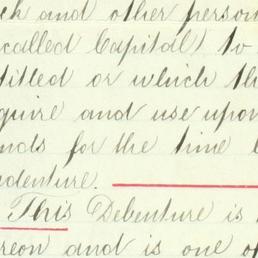 and other person
called Capital) to
titled or which th
quire and use upon
nds for the time
denture.
This Debenture is
reon and is one of